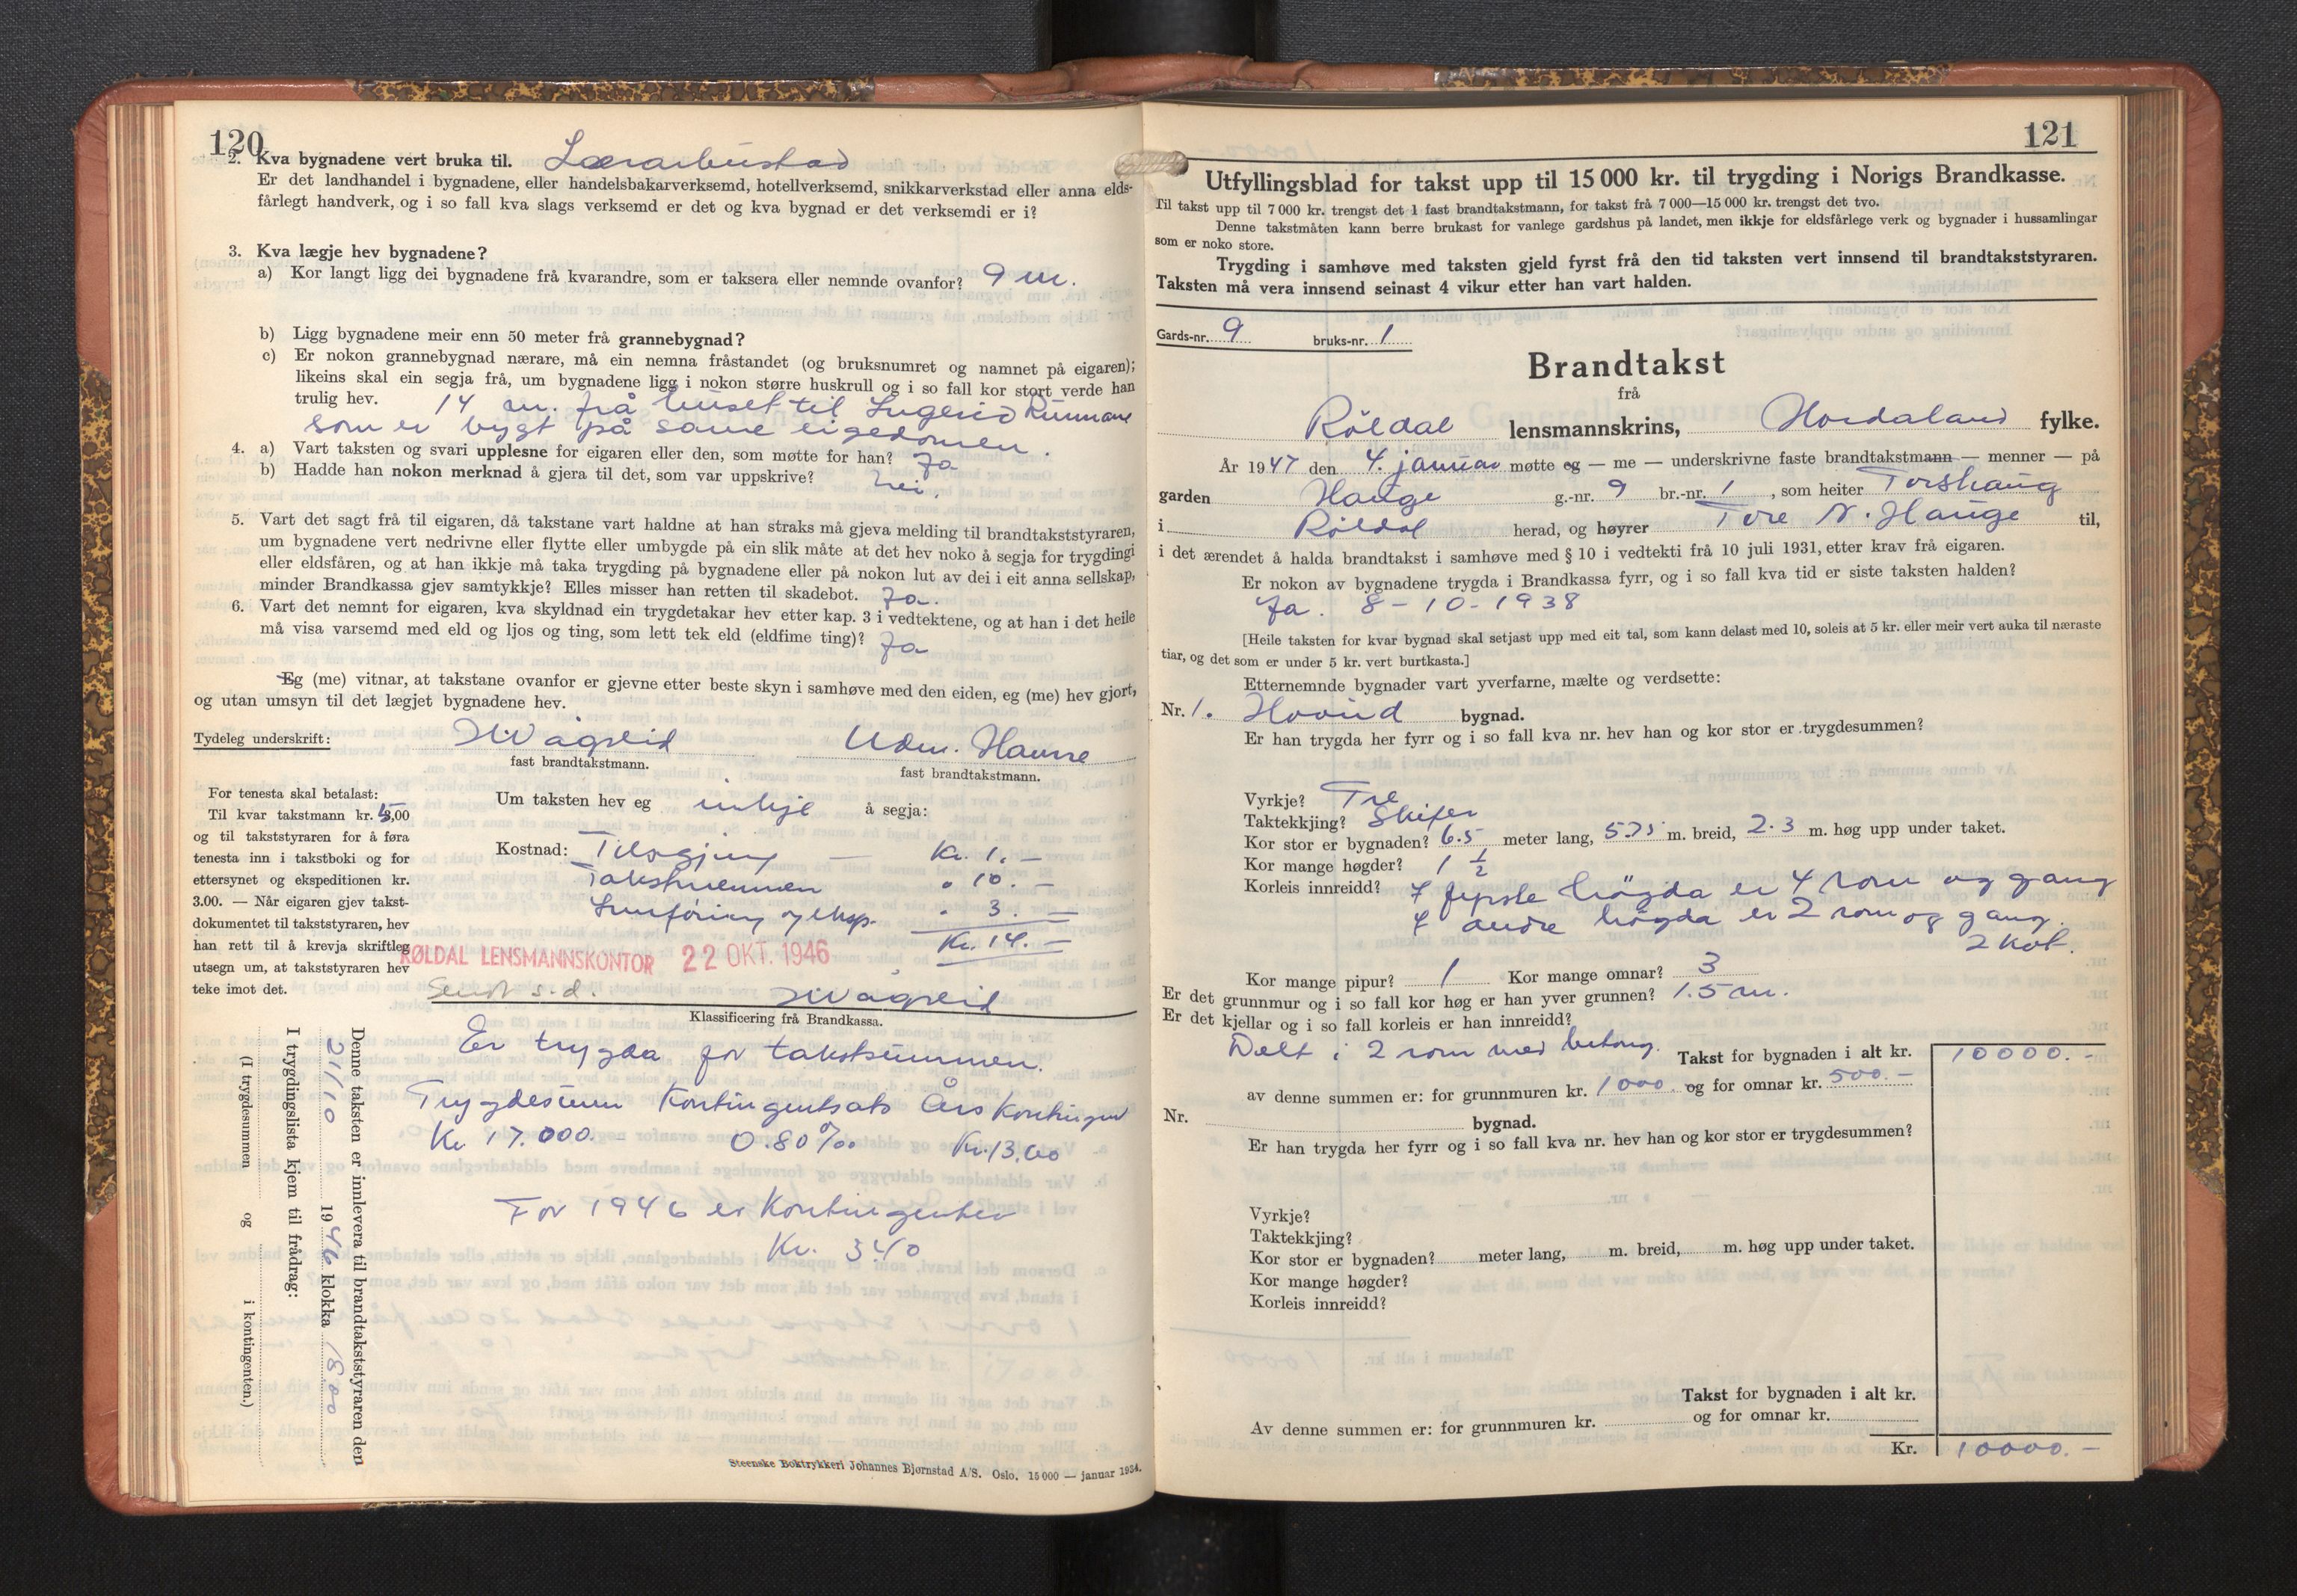 120
2. Kva bygnadene vert bruka til. Lærarbustad
Er det landhandel i bygnadene, eller handelsbakarverksemd, hotellverksemd, snikkarverkstad eller anna elds-
fårlegt handverk, og i so fall kva slags verksemd er det og kva bygnad er det verksemdi er i?
3. Kva lægje hev bygnadene?
a) Kor langt ligg dei bygnadene frå kvarandre, som er taksera eller nemnde ovanfor? 9 m.
b) Ligg bygnadene meir enn 50 meter frå grannebygnad?
c) Er nokon grannebygnad nærare, må ein nemna fråstandet (og bruksnumret og namnet på eigaren);
likeins skal ein segja frå, um bygnadene ligg i nokon større huskrull og i so fall kor stort verde han
trulig hev. 14 m. frå huset til Ingerid Rimmane
som er bygt på same eigedomen.
4. a) Vart taksten og svari upplesne for eigaren eller den, som møtte for han? Ja
b) Hadde han nokon merknad å gjera til det, som var uppskrive? Nei.
5. Vart det sagt frå til eigaren, då takstane vart haldne at han straks må gjeva melding til brandtakststyraren,
um bygnadene vert nedrivne eller flytte eller umbygde på ein slik måte at det hev noko å segja for trygdingi
eller eldsfåren, og at han ikkje må taka trygding på bygnadene eller på nokon lut av dei i eit anna sellskap,
minder Brandkassa gjev samtykkje? Elles misser han retten til skadebot. Ja.
6. Vart det nemnt for eigaren, kva skyldnad ein trygdetakar hev etter kap. 3 i vedtektene, og at han i det heile
må visa varsemd med eld og ljos og ting, som lett tek eld (eldfime ting)? Ja
Eg (me) vitnar, at takstane ovanfor er gjevne etter beste skyn i samhøve med den eiden, eg (me) hev gjort,
og utan umsyn til det lægjet bygnadene hev.
Tydeleg underskrift: Vågslid Udm. Havre
fast brandtakstmann. fast brandtakstmann.
For tenesta skal betalast:
Til kvar takstmann kr. 5,00
og til takststyraren for å føra
tenesta inn i takstboki og for
ettersynet og ekspeditionen kr.
3.00. — Når eigaren gjev takst-
dokumentet til takststyraren, hev
han rett til å krevja skriftleg
utsegn um, at takststyraren hev
teke imot det.
Um taksten hev eg inkje å segja:
Kostnad: Tilsegjing — Kr. 1.—
Takstmennen " 10.—
Innføring og eksp. " 3.—
Kr. 14.—
RØLDAL LENSMANNSKONTOR 22 OKT. 1946
Sendt s.d. Vågslid
Klassificering frå Brandkassa.
Er trygda for takstsummen.
Trygdesum Kontingentsats Årskontingent
Kr 17.000. 0.80‰ Kr. 13,60
For 1946 er Kontingenten
Kr. 3.40
Denne taksten er innlevera til brandtakststyraren den
21/10 1946 klokka 18.00
I trygdingslista kjem til frådrag:
(I trygdesummen og i kontingenten.)
Steenske Boktrykkeri Johannes Bjørnstad A/S. Oslo. 15 000 — januar 1934.
121
Utfyllingsblad for takst upp til 15 000 kr. til trygding i Norigs Brandkasse.
Til takst upp til 7 000 kr. trengst det 1 fast brandtakstmann, for takst frå 7 000—15 000 kr. trengst det tvo.
Denne takstmåten kann berre brukast for vanlege gardshus på landet, men ikkje for eldsfårlege verk og bygnader i hussamlingar
som er noko store.
Trygding i samhøve med taksten gjeld fyrst frå den tid taksten vert innsend til brandtakststyraren.
Taksten må vera innsend seinast 4 vikur etter han vart halden.
Gards-nr. 9 bruks-nr. 1
Brandtakst
frå
Röldal lensmannskrins, Hordaland fylke.
År 1947 den 4. januar møtte eg — me — underskrivne faste brandtakstmann — menner — på
garden Hauge g.-nr. 9 br.-nr. 1, som heiter Torshaug
i Röldal herad, og høyrer Tore N. Hauge til,
i det ærendet å halda brandtakst i samhøve med § 10 i vedtekti frå 10 juli 1931, etter krav frå eigaren.
Er nokon av bygnadene trygda i Brandkassa fyrr, og i so fall kva tid er siste taksten halden?
Ja. 8-10-1938
[Heile taksten for kvar bygnad skal setjast upp med eit tal, som kann delast med 10, soleis at 5 kr. eller meir vert auka til næraste
tiar, og det som er under 5 kr. vert burtkasta.]
Etternemnde bygnader vart yverfarne, mælte og verdsette:
Nr. 1. Hovud bygnad.
Er han trygda her fyrr og i so fall kva nr. hev han og kor stor er trygdesummen?
Vyrkje? Tre
Taktekkjing? Skifer
Kor stor er bygnaden? 6.5 meter lang, 5.75 m. breid, 2.3 m. høg upp under taket.
Kor mange høgder? 1 1/2
Korleis innreidd? I fyrste högda er 4 rom og gang
I andre högda er 2 rom og gang.
2 kot.
Kor mange pipur? 1 Kor mange omnar? 3
Er det grunnmur og i so fall kor høg er han yver grunnen? 1.5 m.
Er det kjellar og i so fall korleis er han innreidd?
Delt i 2 rom med betong. Takst for bygnaden i alt kr. 10000.-
av denne summen er: for grunnmuren kr. 1000. og for omnar kr. 500.-
Nr. bygnad.
Er han trygda her fyrr og i so fall kva nr. hev han og kor stor er trygdesummen?
Vyrkje?
Taktekkjing?
Kor stor er bygnaden? meter lang, m. breid, m. høg upp under taket.
Kor mange høgder?
Korleis innreidd?
Takst for bygnaden i alt kr.
Av denne summen er: for grunnmuren kr. og for omnar kr.
Kr. 10000.-